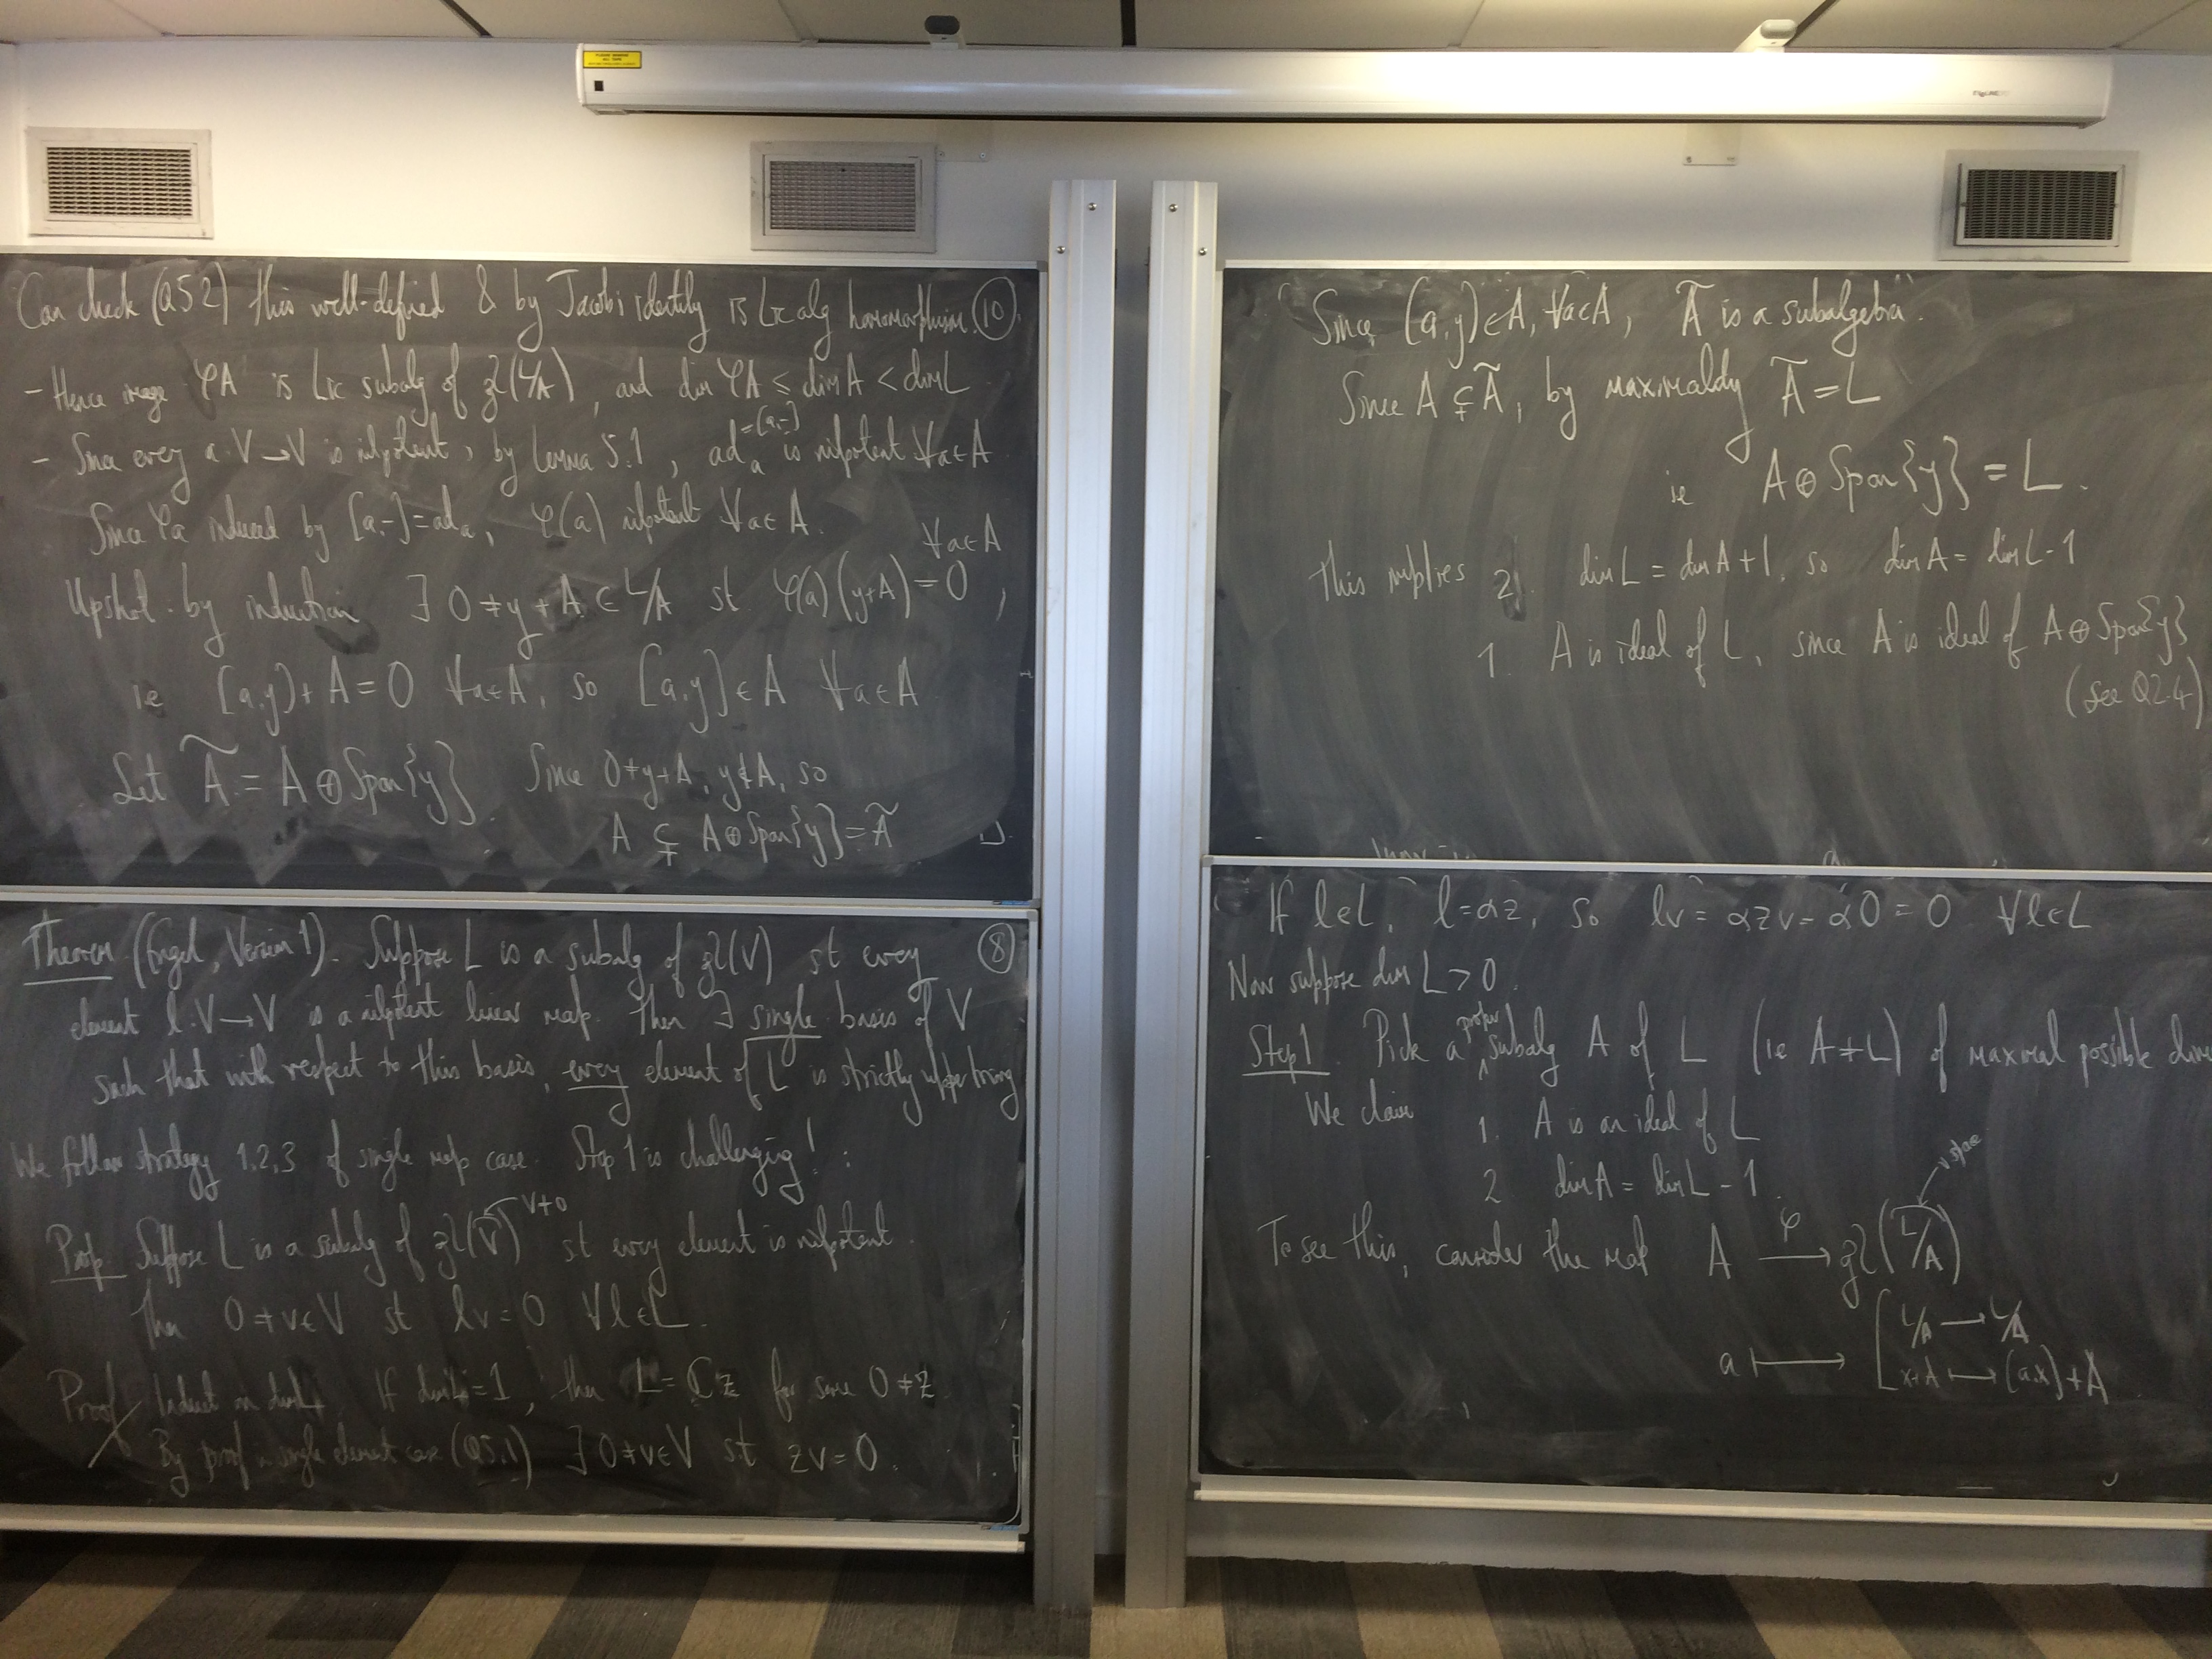 Can check (Q5.2) this well-defined & by Jacobi identity is Lie alg homomorphism. ⑩
- Hence image φA is Lie subalg of gl(L/A), and dim φA ⩽ dim A < dim L
- Since every a: V→V is nilpotent, by Lemma 5.1, ad_a =[a,-] is nilpotent ∀a∈A
Since φa induced by [a,-]=ad_a, φ(a) nilpotent ∀a∈A.
Upshot. by induction ∃ 0≠y+A ∈ L/A st φ(a)(y+A)=0 ∀a∈A,
ie [a,y]+A=0 ∀a∈A, so [a,y]∈A ∀a∈A
Let Ã = A⊕Span{y}. Since 0≠y+A, y∉A, so
A ⊊ A⊕Span{y}=Ã
Theorem (Engel, Version 1). Suppose L is a subalg of gl(V) st every ⑧
element l:V→V is a nilpotent linear map. Then ∃ single basis of V
such that with respect to this basis, every element of L is strictly upper triang
We follow strategy 1,2,3 of single map case. Step 1 is challenging!
Prop. Suppose L is a subalg of gl(V) V≠0 st every element is nilpotent.
Then 0≠v∈V st lv=0 ∀l∈L.
Proof Induct on dim L. If dim L=1, then L=ℂz for some 0≠z.
By proof in single element case (Q5.1) ∃0≠v∈V st zv=0.
Since [a,y]∈A, ∀a∈A, Ã is a subalgebra.
Since A⊊Ã, by maximality Ã=L
ie A⊕Span{y}=L.
This implies 2. dim L = dim A+1, so dim A = dim L-1
1. A is ideal of L, since A is ideal of A⊕Span{y}
(see Q2.4)
If l∈L, l=αz, so lv=αzv=α0=0 ∀l∈L
Now suppose dim L>0.
Step 1. Pick a proper subalg A of L (ie A≠L) of maximal possible dim
We claim 1. A is an ideal of L
2. dim A = dim L-1.
v.space
To see this, consider the map A →φ gl(L/A)
L/A → L/A
a ↦ [ x+A ↦ [a,x]+A